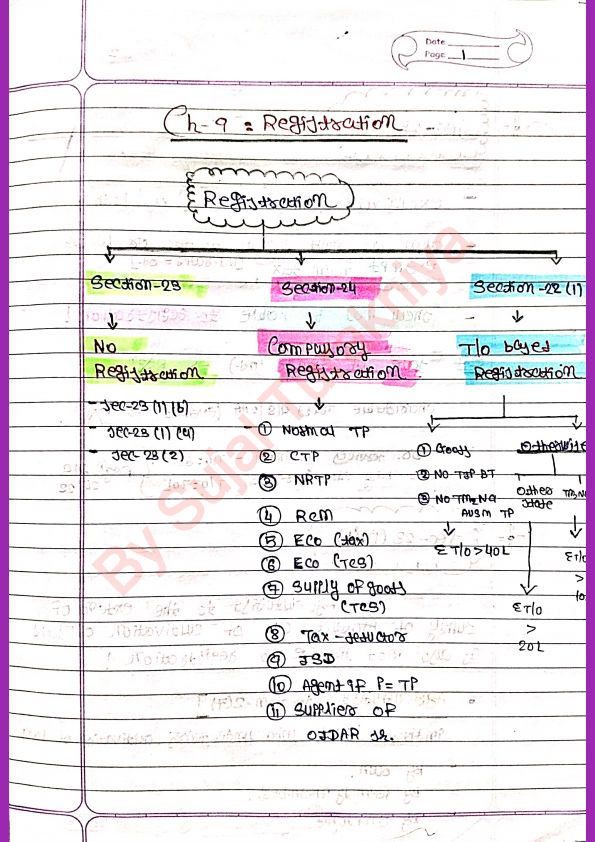 Date
Page 1
Ch-9 = Registration
Registration
Section-23
Section-24
Section-22(1)
No
Registration
Compulsory
Registration
T/o based
Registration
- Sec-23(1)(b)
- Sec-23(1)(a)
- Sec-23(2)
① Normal TP
② CTP
③ NRTP
④ RCM
⑤ ECO (tax)
⑥ ECO (TCS)
⑦ Supply of goods
(TCS)
⑧ Tax-deductor
⑨ ISD
⑩ Agent of P = TP
⑪ Supplier OF
OIDAR sr.
① Goods
② NO
③ NO
Σ T/O > 40L
Otherwise
Other
State
Σ T/O
>
20L
Σ T/O
>
10
By Sujal Thakhiya